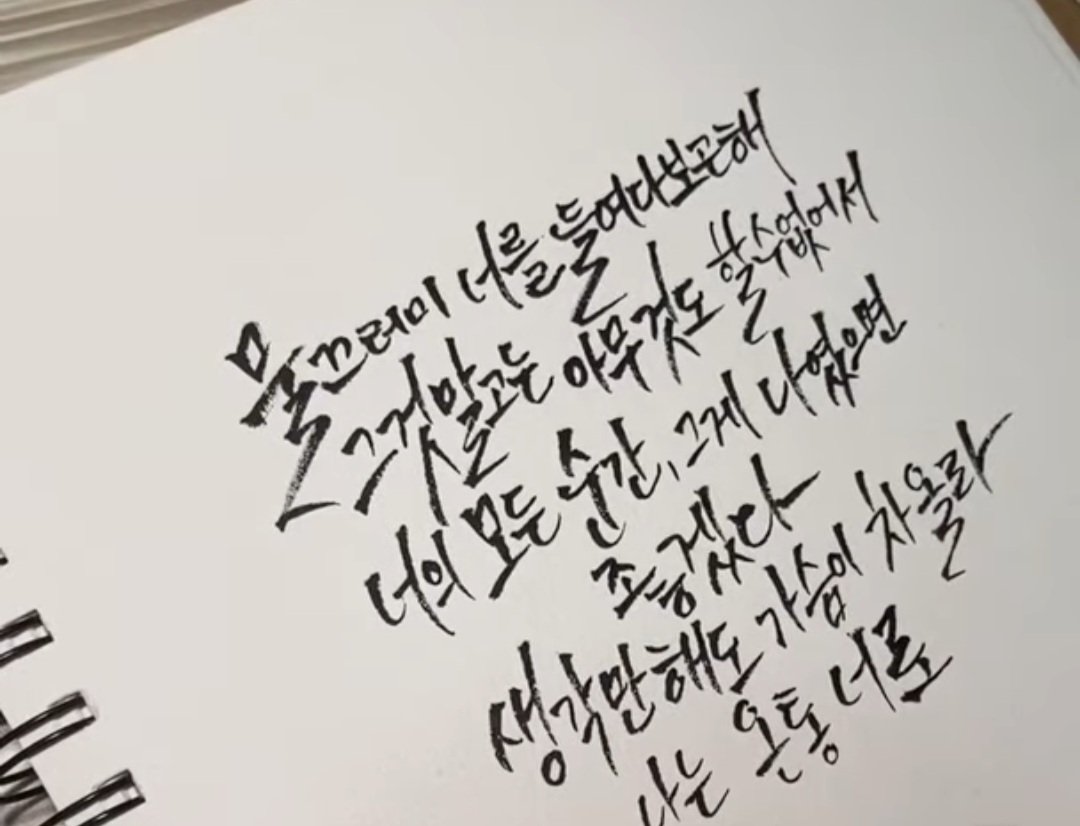 물끄러미 너를 들여다보곤해
그것말고는 아무것도 할수없어서
너의 모든 순간, 그게 나였으면
좋겠다
생각만해도 가슴이 차올라
나는 온통 너로